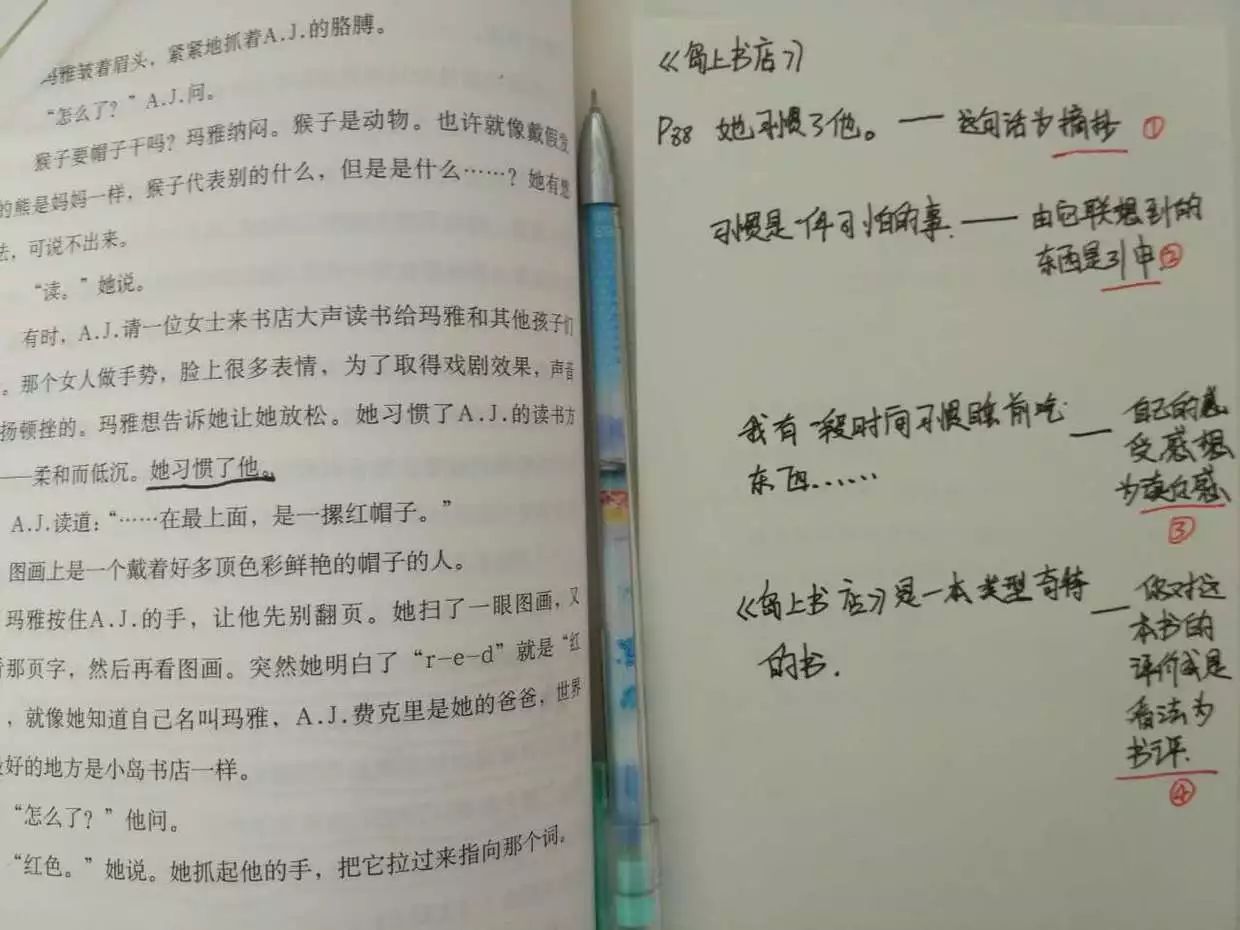 玛雅皱着眉头，紧紧地抓着A.J.的胳膊。
“怎么了？”A.J.问。
猴子要帽子干吗？玛雅纳闷。猴子是动物。也许就像戴假发
的熊是妈妈一样，猴子代表别的什么，但是是什么……？她有想
法，可说不出来。
“读。”她说。
有时，A.J.请一位女士来书店大声读书给玛雅和其他孩子们
。那个女人做手势，脸上很多表情，为了取得戏剧效果，声音
扬顿挫的。玛雅想告诉她让她放松。她习惯了A.J.的读书方
——柔和而低沉。她习惯了他。
A.J.读道：“……在最上面，是一摞红帽子。”
图画上是一个戴着好多顶色彩鲜艳的帽子的人。
玛雅按住A.J.的手，让他先别翻页。她扫了一眼图画，又
看那页字，然后再看图画。突然她明白了“r-e-d”就是“红
，就像她知道自己名叫玛雅，A.J.费克里是她的爸爸，世界
最好的地方是小岛书店一样。
“怎么了？”他问。
“红色。”她说。她抓起他的手，把它拉过来指向那个词。
《岛上书店》
P88 她习惯了他。—— 这句话为摘抄 ①
习惯是一件可怕的事. —— 由它联想到的
东西是引申②
我有一段时间习惯睡前吃
东西…… —— 自己的感
受感想
为读后感
③
《岛上书店》是一本类型奇特
的书. —— 你对这
本书的
评价或是
看法为
书评.
④